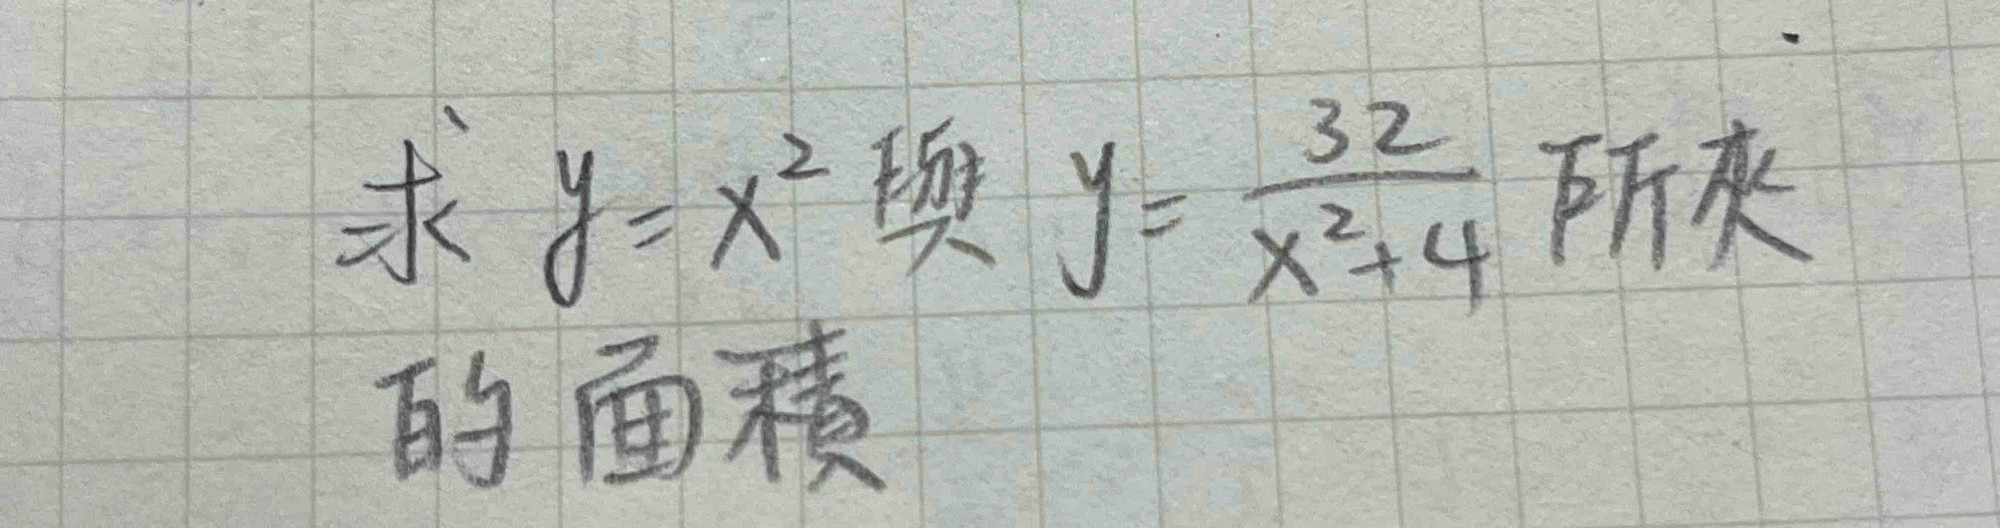 求 y=x² 與 y=32/(x²+4) 所夾
的面積